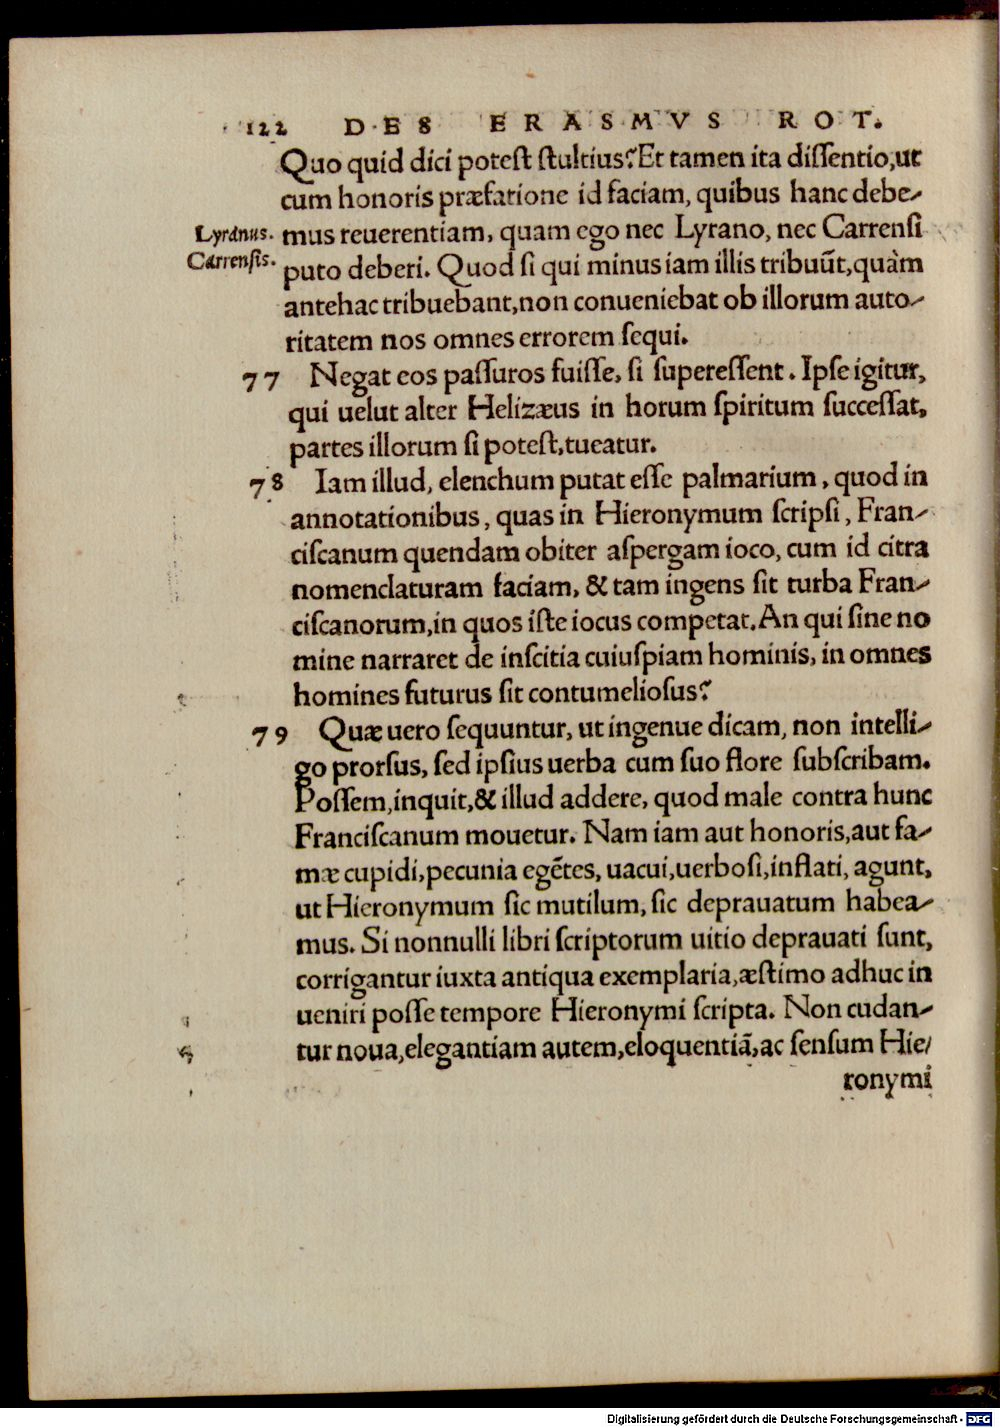 122 DES ERASMVS ROT.
Quo quid dici potest stultius? Et tamen ita dissentio, ut
cum honoris præfatione id faciam, quibus hanc debe-
Lyranus. mus reuerentiam, quam ego nec Lyrano, nec Carrensi
Carrensis. puto deberi. Quod si qui minus iam illis tribuūt, quàm
antehac tribuebant, non conueniebat ob illorum auto-
ritatem nos omnes errorem sequi.
77 Negat eos passuros fuisse, si superessent. Ipse igitur,
qui uelut alter Helizæus in horum spiritum successat,
partes illorum si potest, tueatur.
78 Iam illud, elenchum putat esse palmarium, quod in
annotationibus, quas in Hieronymum scripsi, Fran-
ciscanum quendam obiter aspergam ioco, cum id citra
nomenclaturam faciam, & tam ingens sit turba Fran-
ciscanorum, in quos iste iocus competat. An qui sine no
mine narraret de inscitia cuiuspiam hominis, in omnes
homines futurus sit contumeliosus?
79 Quæ uero sequuntur, ut ingenue dicam, non intelli-
go prorsus, sed ipsius uerba cum suo flore subscribam.
Possem, inquit, & illud addere, quod male contra hunc
Franciscanum mouetur. Nam iam aut honoris, aut fa-
mæ cupidi, pecunia egētes, uacui, uerbosi, inflati, agunt,
ut Hieronymum sic mutilum, sic deprauatum habea-
mus. Si nonnulli libri scriptorum uitio deprauati sunt,
corrigantur iuxta antiqua exemplaria, æstimo adhuc in
ueniri posse tempore Hieronymi scripta. Non cudan-
tur noua, elegantiam autem, eloquentiā, ac sensum Hie/
ronymi
Digitalisierung gefördert durch die Deutsche Forschungsgemeinschaft - DFG